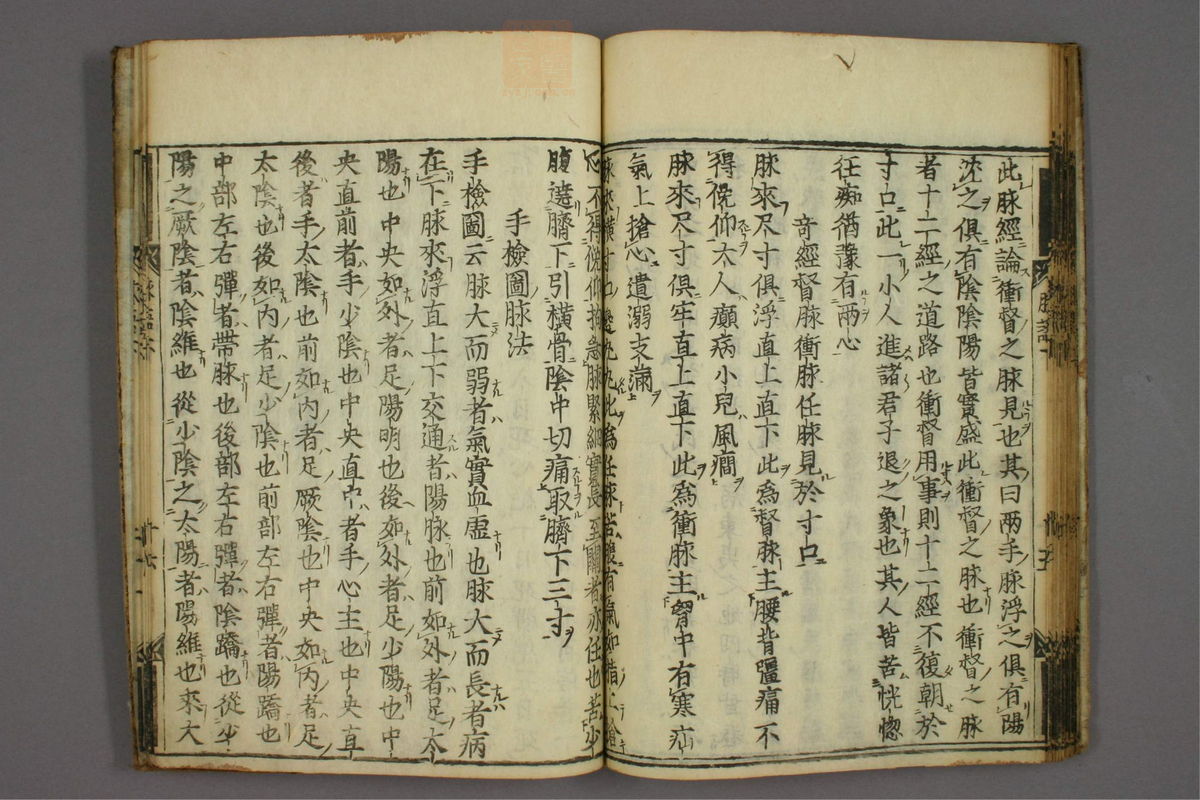 此脉經論衝督之脉見也其曰兩手脉浮之俱有陽
沈之俱有陰陰陽皆實盛此衝督之脉也衝督之脉
者十二經之道路也衝督用事則十二經不復朝於
寸口此一小人進諸君子退之象也其人皆苦恍惚
狂痴猶豫有兩心
奇經督脉衝脉任脉見於寸口
脉來尺寸俱浮直上直下此爲督脉主腰背彊痛不
得俛仰大人癲病小兒風癇
脉來尺寸俱牢直上直下此爲衝脉主胷中有寒疝
氣上搶心遺溺支滿
脉來横寸口邊丸丸此爲任脉苦腹有氣如指上搶
心不得俛仰拘急脉緊細實長至關者亦任也苦少
腹遶臍下引横骨陰中切痛取臍下三寸
手檢圖脉法
手檢圖云脉大而弱者氣實血虚也脉大而長者病
在下脉來浮直上下交通者陽脉也前如外者足太
陽也中央如外者足陽明也後如外者足少陽也中
央直前者手少陰也中央直中者手心主也中央直
後者手太陰也前如内者足厥陰也中央如内者足
太陰也後如内者足少陰也前部左右彈者陽蹻也
中部左右彈者帶脉也後部左右彈者陰蹻也從少
陽之厥陰者陰維也從少陰之太陽者陽維也來大